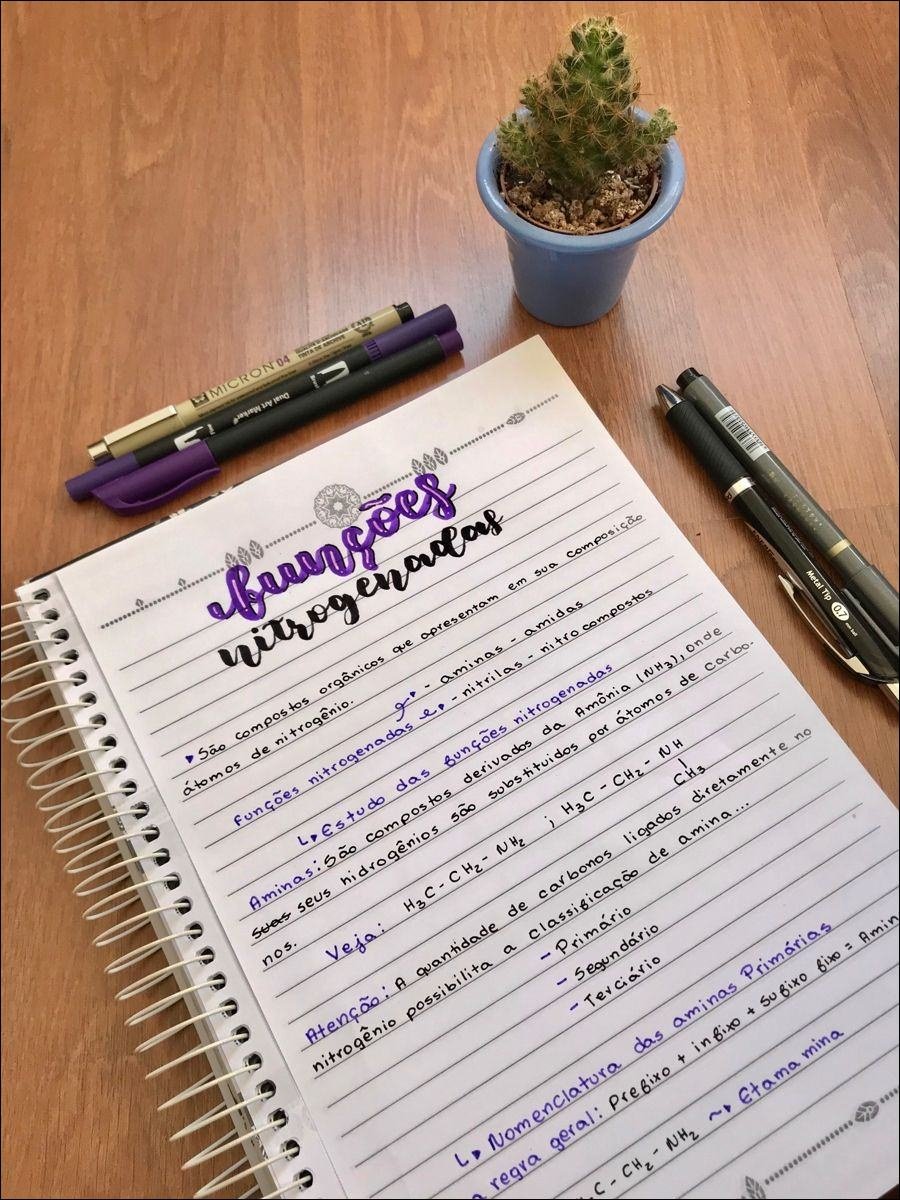 MICRON 04
TINTA DE ARCHIVE
Dual Art Marker
Metal Tip 0.7
funções
nitrogenadas
São compostos orgânicos que apresentam em sua composição
átomos de nitrogênio.
- aminas - amidas
Funções nitrogenadas - nitrilas - nitro compostos
Estudo das funções nitrogenadas
Aminas: São compostos derivados da Amônia (NH₃), onde
suas seus hidrogênios são substituidos por átomos de carbo-
nos.
Veja: H₃C - CH₂ - NH₂ ; H₃C - CH₂ - NH
CH₃
Atenção: A quantidade de carbonos ligados diretamente no
nitrogênio possibilita a classificação de amina...
- Primário
- Segundário
- Terciário
Nomenclatura das aminas Primárias
a regra geral: Prefixo + infixo + Sufixo fixo = Amin
C - CH₂ - NH₂ ~ Etamamina